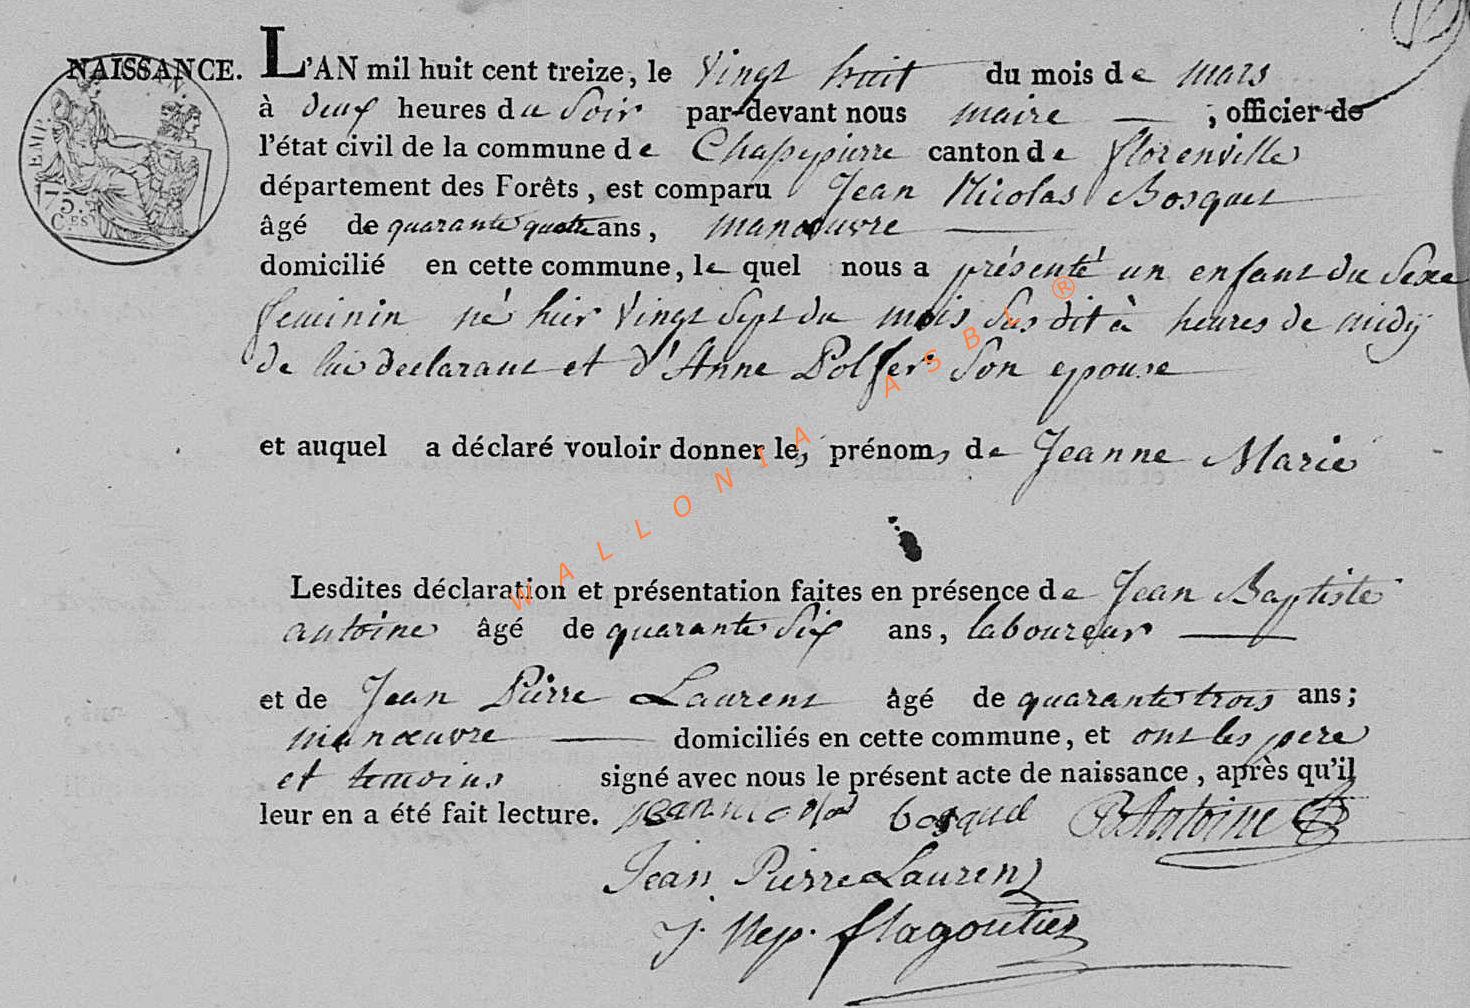 NAISSANCE. L'AN mil huit cent treize, le Vingt huit du mois de mars
à deux heures du Soir par-devant nous maire ; officier de
l'état civil de la commune de Chassepierre canton de florenville
département des Forêts, est comparu Jean Nicolas Bosquet
âgé de quarante quatre ans, manœuvre
domicilié en cette commune, le quel nous a présenté un enfant du Sexe
feminin né hier Vingt Sept du mois Sus dit à heures de midy
de lui declarant et d'Anne Polfer Son epouse
et auquel a déclaré vouloir donner les prénoms de Jeanne Marie
Lesdites déclaration et présentation faites en présence de Jean Baptiste
antoine âgé de quarante Six ans, laboureur
et de Jean Pierre Laurent âgé de quarante trois ans;
manœuvre domiciliés en cette commune, et ont les pere
et temoins signé avec nous le présent acte de naissance, après qu'il
leur en a été fait lecture. jean nicolas bosquet Antoine
Jean Pierre Laurent
J. Nep. flagoutier
TEMP.
75.
C.ES
WALLONIA ASBL ®